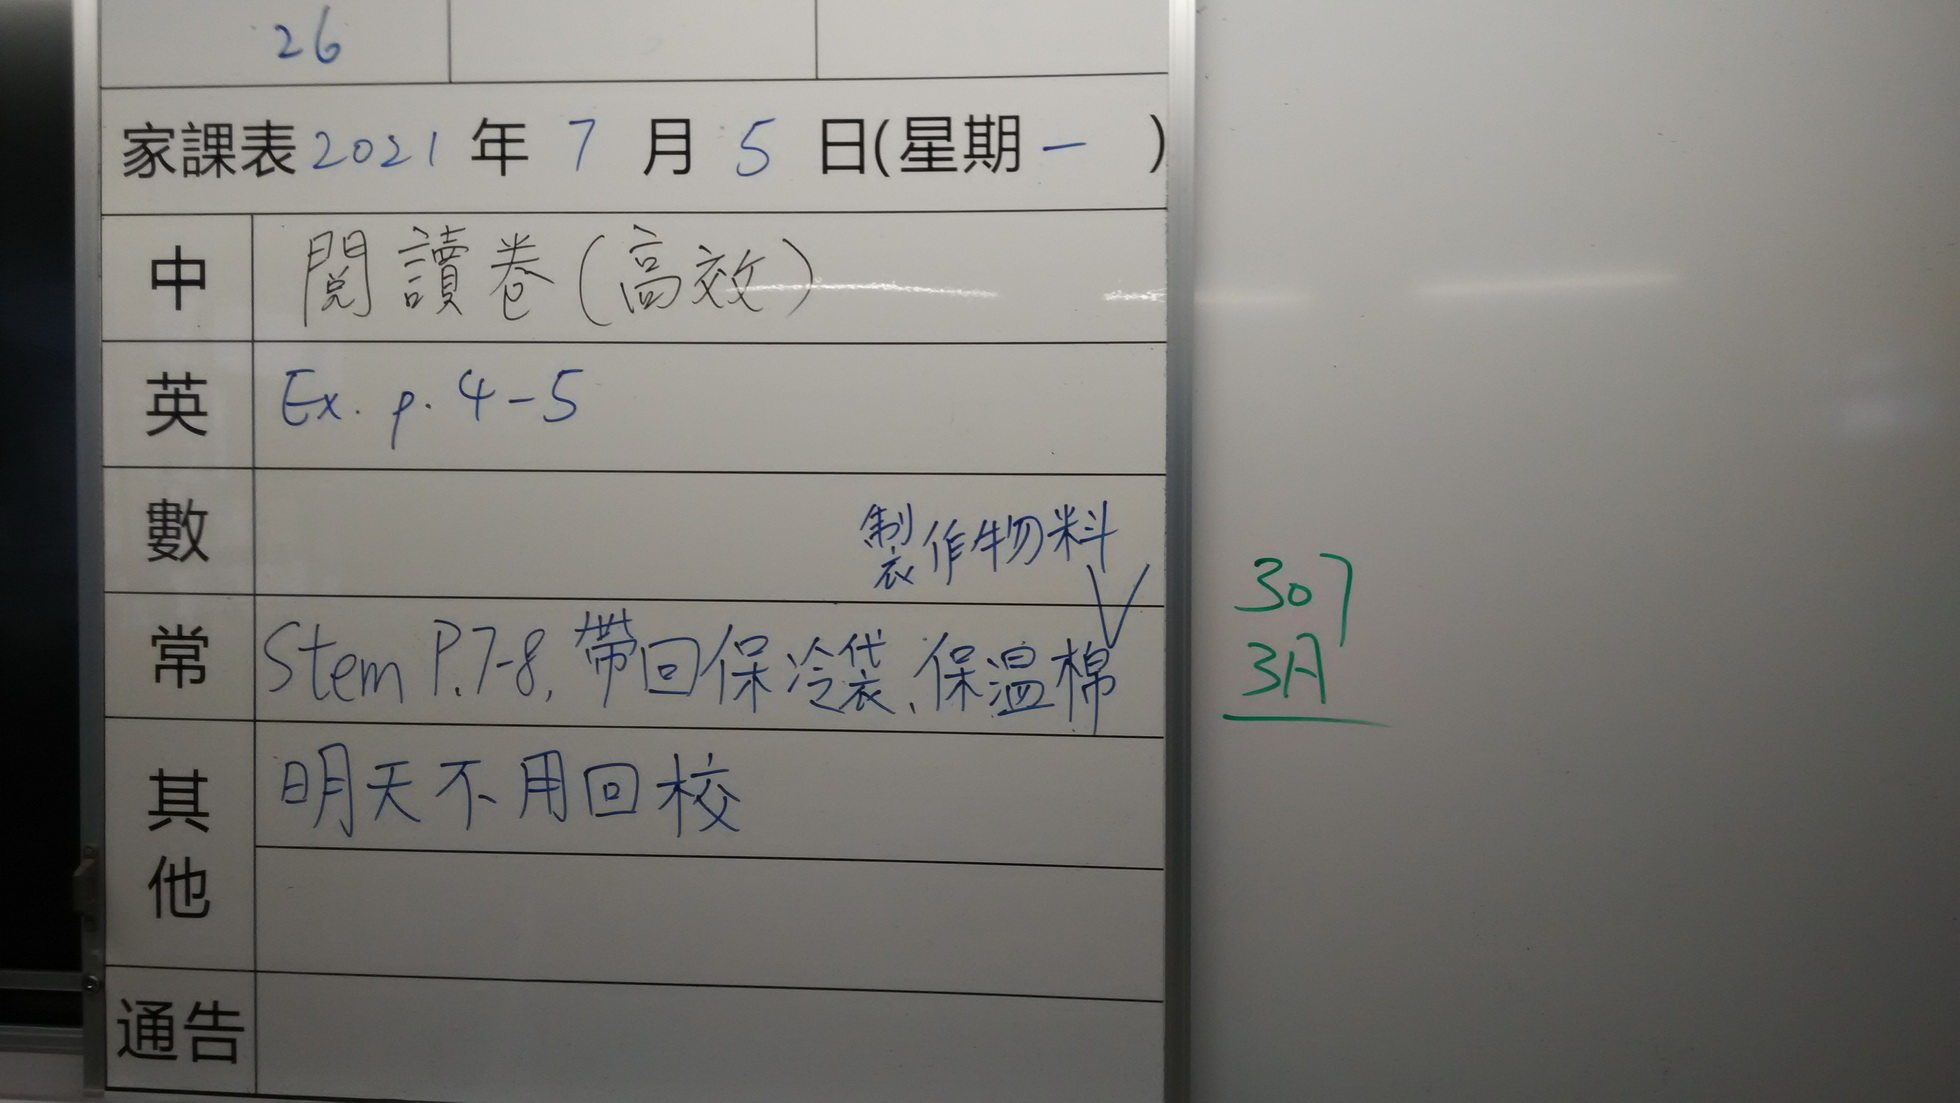 26
家課表 2021 年 7 月 5 日(星期一 )
中 閱讀卷(高效)
英 Ex. p. 4-5
數
製作物料
常 Stem P.7-8, 帶回保冷袋、保溫棉
其他 明天不用回校
通告
307
3A